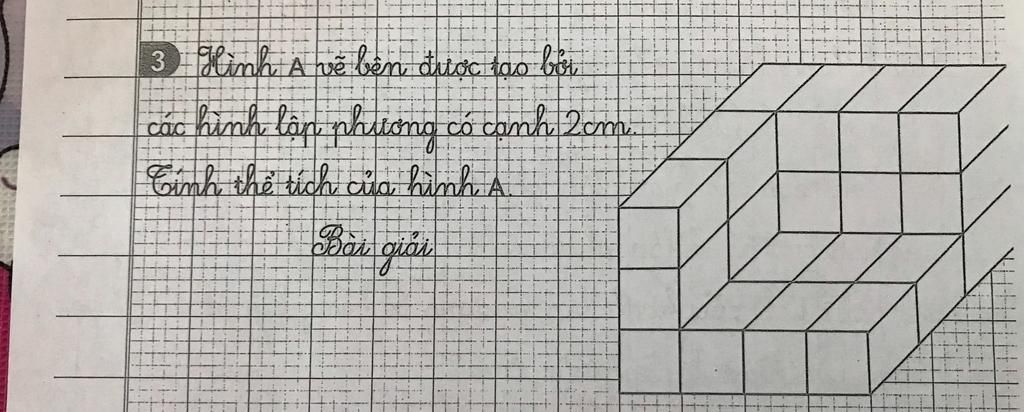 3 Hình A vẽ bên được tạo bởi
các hình lập phương có cạnh 2cm.
Tính thể tích của hình A.
Bài giải